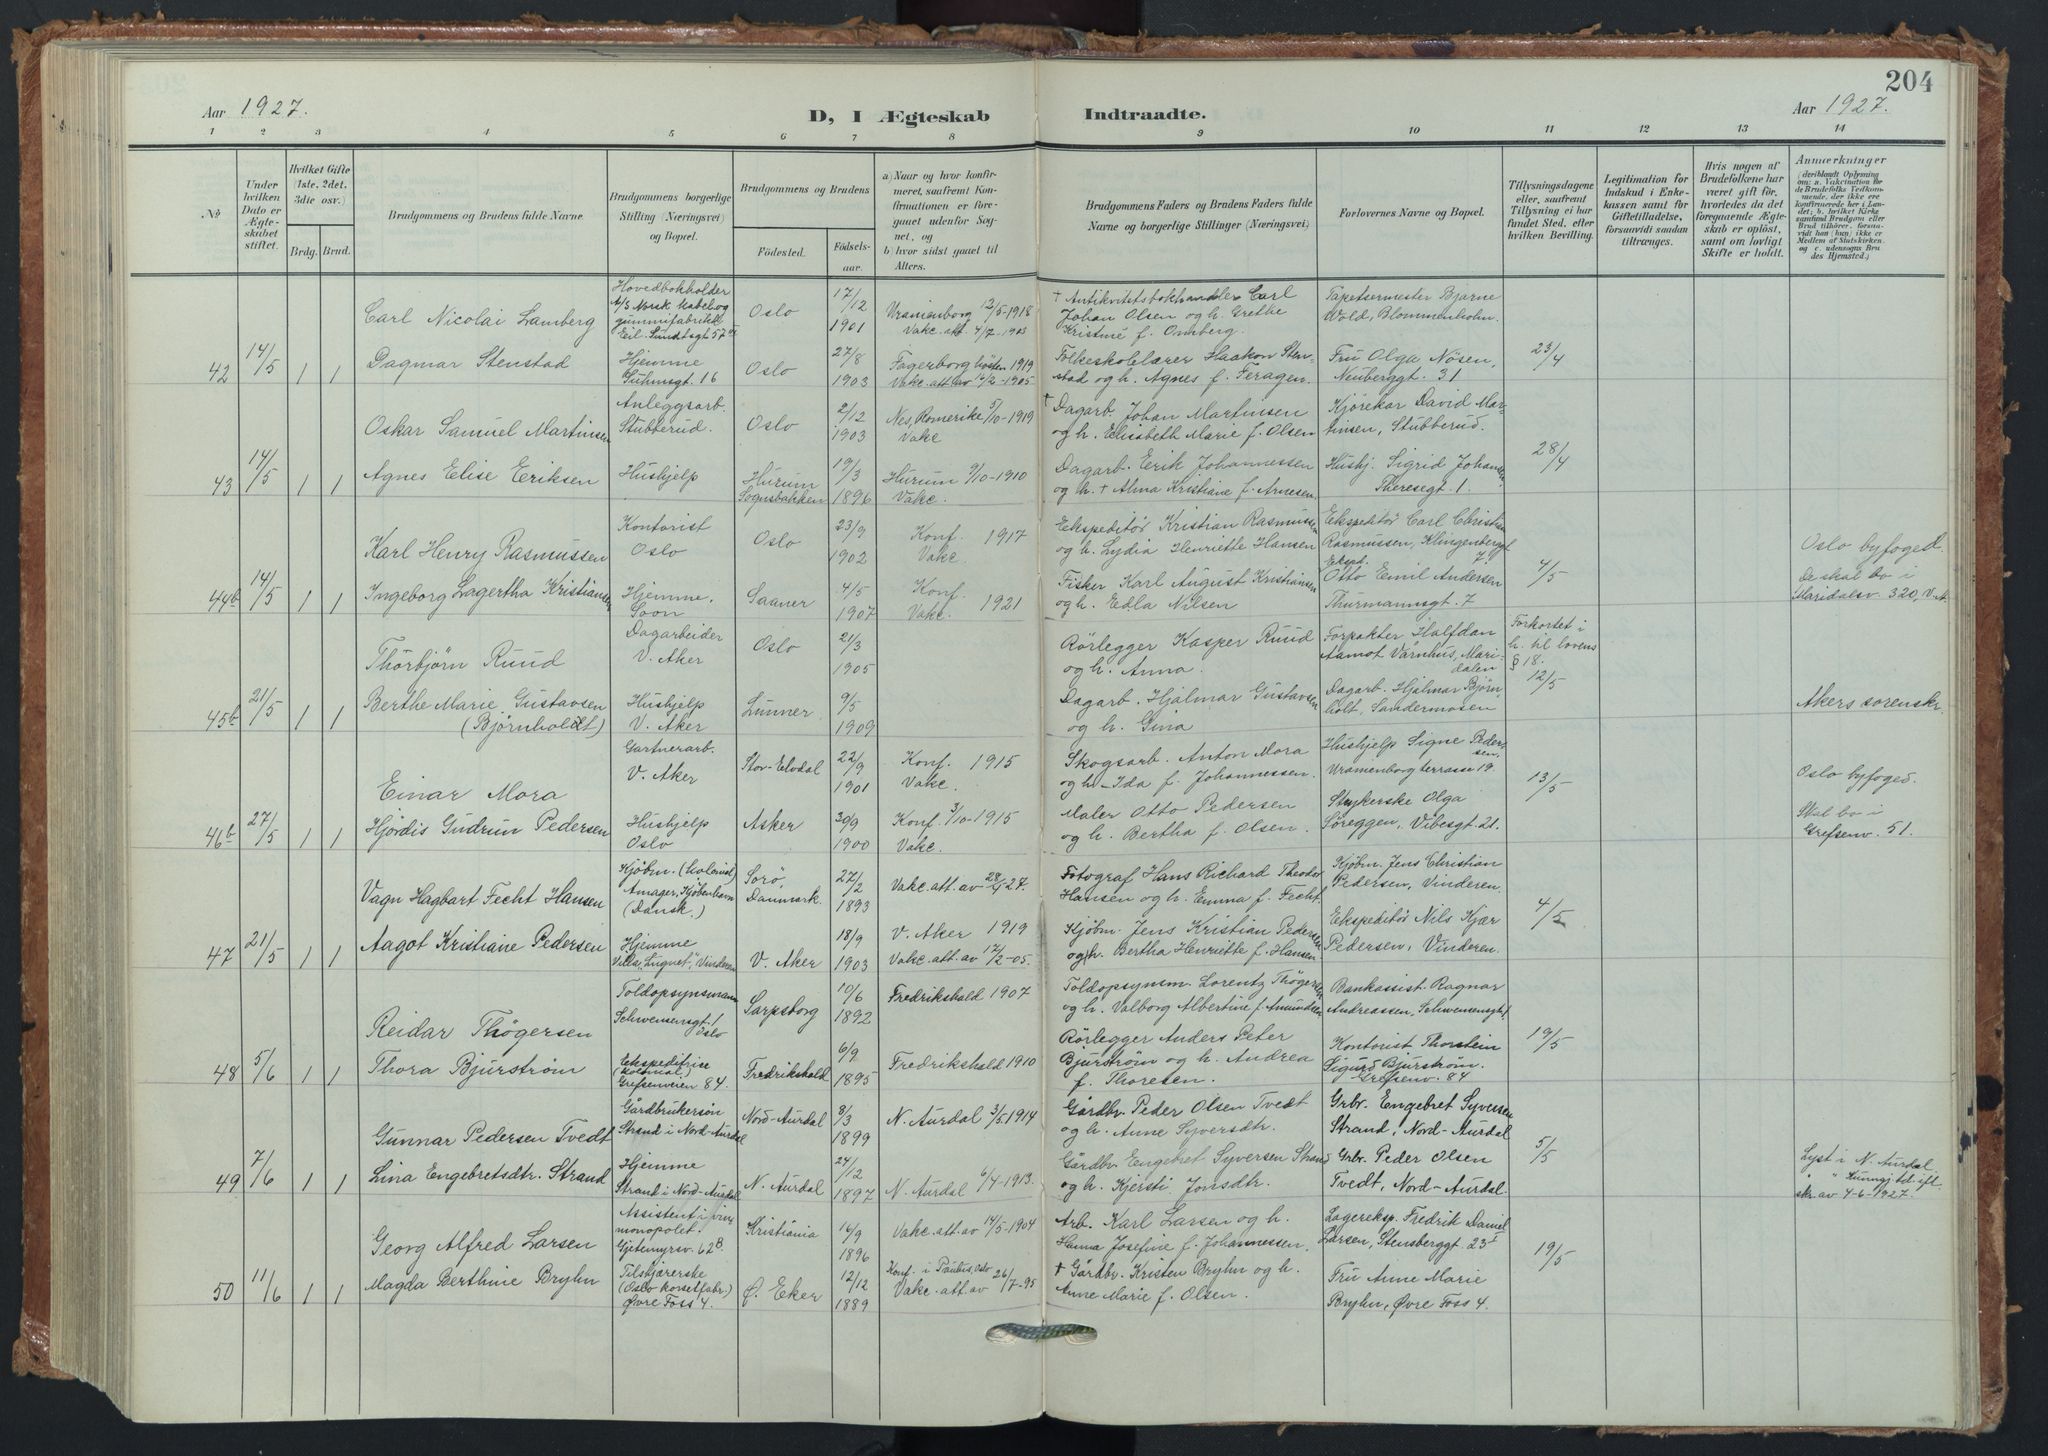 204
Aar 1927.
D, I Ægteskab Indtraadte.
Aar 1927.
1 2 3 4 5 6 7 8 9 10 11 12 13 14
No
Under hvilken Dato er Ægteskabet stiftet.
Hvilket Gifte (1ste, 2det, 3die osv.)
Brdg. Brud.
Brudgommens og Brudens fulde Navne.
Brudgommens borgerlige Stilling (Næringsvei) og Bopæl.
Brudgommens og Brudens
Fødested. Fødselsaar.
a) Naar og hvor konfirmeret, saafremt Konfirmationen er foregaaet udenfor Sognet, og
b) hvor sidst gaaet til Alters.
Brudgommens Faders og Brudens Faders fulde Navne og borgerlige Stillinger (Næringsvei)
Forlovernes Navne og Bopæl.
Tillysningsdagene eller, saafremt Tillysning ei har fundet Sted, efter hvilken Bevilling.
Legitimation for Indskud i Enkekassen samt for Giftetilladelse, forsaavidt saadan tiltrænges.
Hvis nogen af Brudefolkene har været gift før, hvorledes da det foregaaende Ægteskab er opløst, samt om lovligt Skifte er holdt.
Anmærkninger
(deriblandt Oplysning om: a. Vakcination for de Brudefolks Vedkommende, der ikke ere konfirmerede her i Landet; b. hvilket Kirkesamfund Brudgom eller Brud tilhører, forsaavidt han (hun) ikke er Medlem af Statskirken, og c. udensogns Brudes Hjemsted.)
Carl Nicolai Lamberg
Hovedbokholder
A/S Norsk Kabel og
gummifabrikk
Eil. Sundtsgt 57
Oslo
17/12
1901
Uranienborg 12/5-1918
Vakc. att. 4/7-1903
† Antikvitetsbokhandler Carl
Johan Olsen og h. Grethe
Kristine f. Omberg.
Tapetsermester Bjarne
Wold, Blommenholm.
42 14/5 1 1
Dagmar Stenstad
Hjemme
Suhmsgt. 16
Oslo
27/8
1903
Fagerborg høsten 1919
Vakc. att. av 16/2-1905
Folkeskolelærer Haakon Stenstad
og h. Agnes f. Feragen.
Fru Olga Nösen,
Neuberggt. 31
23/4
Oskar Samuel Martinsen
Anleggsarb.
Stubberud.
Oslo
2/12
1903
Nes, Romerike 5/10-1919
Vakc
† Dagarb. Johan Martinsen
og h. Elisabeth Marie f. Olsen
Kjörekar David Martinsen,
Stubberud.
43 14/5 1 1
Agnes Elise Eriksen
Hushjelp
Hurum
Sognsbakken
19/3
1896
Hurum 9/10-1910
Vakc.
Dagarb. Erik Johannessen
og h. † Alma Kristiane f. Arnesen.
Hushj. Sigrid Johansen
Theresegt. 1.
28/4
Karl Henry Rasmussen
Kontorist
Oslo
Oslo
23/9
1902
Konf. 1917
Vakc.
Ekspeditör Kristian Rasmussen
og h. Lydia Henriette Hansen
Ekspeditör Carl Christian
Rasmussen, Klingenberggt
7.
44b 14/5 1 1
Ingeborg Lagertha Kristiansen
Hjemme.
Soon
Saaner
4/5
1907
Konf.
Vakc. 1921
Fisker Karl August Kristiansen
og h. Edla Nilsen
Eksped.
Otto Emil Andersen
Thurmannsgt. 7
4/5
Oslo byfoged.
De skal bo i
Maridalsv. 320, V. A.
Thorbjörn Ruud
Dagarbeider
V. Aker
Oslo
21/3
1905
Rörlegger Kasper Ruud
og h. Anna.
Forpakter Halfdan
Aamot Varnhus, Maridalen
Forkortet i
h. til lovens
§ 18.
45b 21/5 1 1
Berthe Marie Gustavsen
(Bjørnholdt)
Hushjelp
V. Aker
Lunner
9/5
1909
Dagarb. Hjalmar Gustavsen
og h. Gina
Dagarb. Hjalmar Björnholt,
Sandermosen
12/5
Akers sorenskr.
Einar Mora
Gartnerarb.
V. Aker
Stor-Elvdal
22/9
1901
Konf. 1915
Vakc.
Skogsarb. Anton Mora
og h. Ida f. Johannessen.
Hushjelp Signe Pedersen,
Uranienborgterrasse 19.
46b 27/5 1 1
Hjördis Gudrun Pedersen
Hushjelp
Oslo
Asker
30/9
1900
Konf. 3/10-1915
Vakc.
Maler Otto Pedersen
og h. Bertha f. Olsen.
Strykerske Olga
Söreggen, Vibesgt. 21.
13/5
Oslo byfoged.
Skal bo i
Grefsenv. 51.
Vagn Hagbart Fecht Hansen
Kjöbm. (Kolonial)
Amager, Kjöbenhavn
(Dansk.)
Sorö,
Danmark.
27/2
1893
Vakc. att. av 28/1 27.
Fotograf Hans Richard Theodor
Hansen og h. Emma f. Fecht.
Kjöbm. Jens Christian
Pedersen, Vinderen.
47 21/5 1 1
Aagot Kristiane Pedersen
Hjemme
Villa "Lugnet", Vinderen
V. Aker
18/9
1903
V. Aker 1919
Vakc. att. av 17/2-05.
Kjöbm. Jens Kristian Pedersen
og h. Bertha Henriette f. Hansen
Ekspeditör Nils Kjær
Pedersen, Vinderen.
4/5
Reidar Thögersen
Toldopsynsmann
Schwensensgt. 1
Oslo
Sarpsborg
10/6
1892
Fredrikshald 1907
Toldopsynsm. Lorentz Thögersen
og h. Valborg Albertine f. Amundsen
Bankassist. Ragnar
Andreassen, Schwensensgt. 1
48 5/6 1 1
Thora Bjurström
Ekspeditrise
(Kolonial)
Grefsenveien 84.
Fredrikshald
6/9
1895
Fredrikshald 1910
Rörlegger Anders Peter
Bjurström og h. Andrea
f. Thoresen.
Kontorist Thorstein
Sigurd Bjurström.
Grefsenv. 84
19/5
Gunnar Pedersen Tvedt
Gårdbrukersön
Strand i Nord-Aurdal
Nord-Aurdal
8/3
1899
N. Aurdal 3/5.1914
Gårdbr. Peder Olsen Tvedt
og h. Anne Syversdtr.
Grbr. Engebret Syversen
Strand, Nord-Aurdal
49 7/6 1 1
Lina Engebretsdtr. Strand
Hjemme
Strand i Nord-Aurdal
N. Aurdal
24/12
1897
N. Aurdal 6/7-1913.
Gårdbr. Engebret Syversen Strand
og h. Kjersti Jonsdtr.
Grbr. Peder Olsen
Tvedt, Nord-Aurdal.
5/5
Lyst i N. Aurdal
" Kunngj. td. ifl.
skr. av 4-6-1927.
Georg Alfred Larsen
Assistent i vinmonopolet.
Gjetemyrsv. 62B
Kristiania
16/9
1896
Vakc. att. av 14/5-1904
Arb. Karl Larsen og h.
Hanna Josefine f. Johannessen.
Lagereksp. Fredrik Daniel
Larsen, Stensberggt 23 I
50 11/6 1 1
Magda Berthine Bryhn
Tilskjærerske
(Oslo korsetfabr.)
Øvre Foss 4.
Ø. Eker
12/12
1889
Konf. i Paulus, Oslo
Vakc. att. av 26/7-95
† Gårdbr. Kristen Bryhn og h.
Anne Marie f. Olsen.
Fru Anne Marie
Bryhn, Øvre Foss 4.
19/5